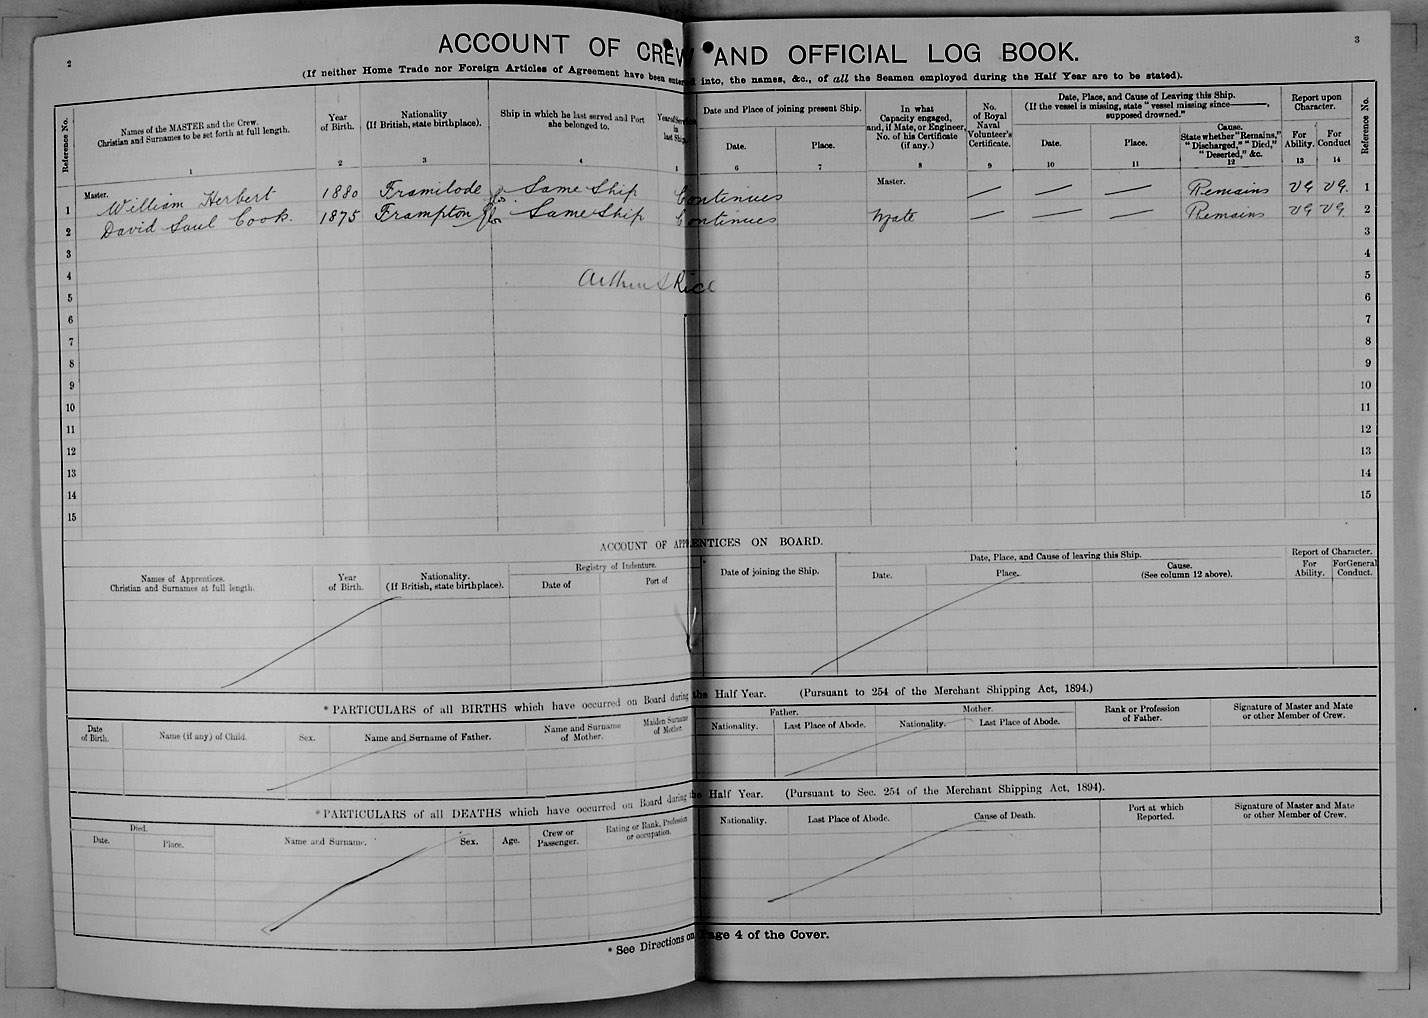 2
3
ACCOUNT OF CREW AND OFFICIAL LOG BOOK.
(If neither Home Trade nor Foreign Articles of Agreement have been entered into, the names, &c., of all the Seamen employed during the Half Year are to be stated).
Reference No.
Names of the MASTER and the Crew.
Christian and Surnames to be set forth at full length.
1
Year
of Birth.
2
Nationality
(If British, state birthplace).
3
Ship in which he last served and Port
she belonged to.
4
Year of Service
in
last Ship.
5
Date and Place of joining present Ship.
Date.
6
Place.
7
In what
Capacity engaged,
and, if Mate, or Engineer,
No. of his Certificate
(if any.)
8
No.
of Royal
Naval
Volunteer's
Certificate.
9
Date, Place, and Cause of Leaving this Ship.
(If the vessel is missing, state "vessel missing since———,
supposed drowned."
Date.
10
Place.
11
Cause.
State whether "Remains,"
"Discharged," "Died,"
"Deserted," &c.
12
Report upon
Character.
For
Ability.
13
For
Conduct
14
Reference No.
1 Master. William Herbert 1880 Framilode Same Ship Continues Master. — — — Remains VG VG. 1
2 David Saul Cook. 1875 Frampton Same Ship Continues Mate — — — Remains VG VG. 2
3 3
4 4
Arthur S Rice
5 5
6 6
7 7
8 8
9 9
10 10
11 11
12 12
13 13
14 14
15 15
ACCOUNT OF APPRENTICES ON BOARD.
Names of Apprentices.
Christian and Surnames at full length.
Year
of Birth.
Nationality.
(If British, state birthplace).
Registry of Indenture.
Date of
Port of
Date of joining the Ship.
Date, Place, and Cause of leaving this Ship.
Date.
Place.
Cause.
(See column 12 above).
Report of Character.
For
Ability.
For General
Conduct.
* PARTICULARS of all BIRTHS which have occurred on Board during the Half Year. (Pursuant to 254 of the Merchant Shipping Act, 1894.)
Date
of Birth.
Name (if any) of Child.
Sex.
Name and Surname of Father.
Name and Surname
of Mother.
Maiden Surname
of Mother.
Father.
Nationality.
Last Place of Abode.
Mother.
Nationality.
Last Place of Abode.
Rank or Profession
of Father.
Signature of Master and Mate
or other Member of Crew.
* PARTICULARS of all DEATHS which have occurred on Board during the Half Year. (Pursuant to Sec. 254 of the Merchant Shipping Act, 1894).
Died.
Date.
Place.
Name and Surname.
Sex.
Age.
Crew or
Passenger.
Rating or Rank, Profession
or occupation.
Nationality.
Last Place of Abode.
Cause of Death.
Port at which
Reported.
Signature of Master and Mate
or other Member of Crew.
* See Directions on Page 4 of the Cover.